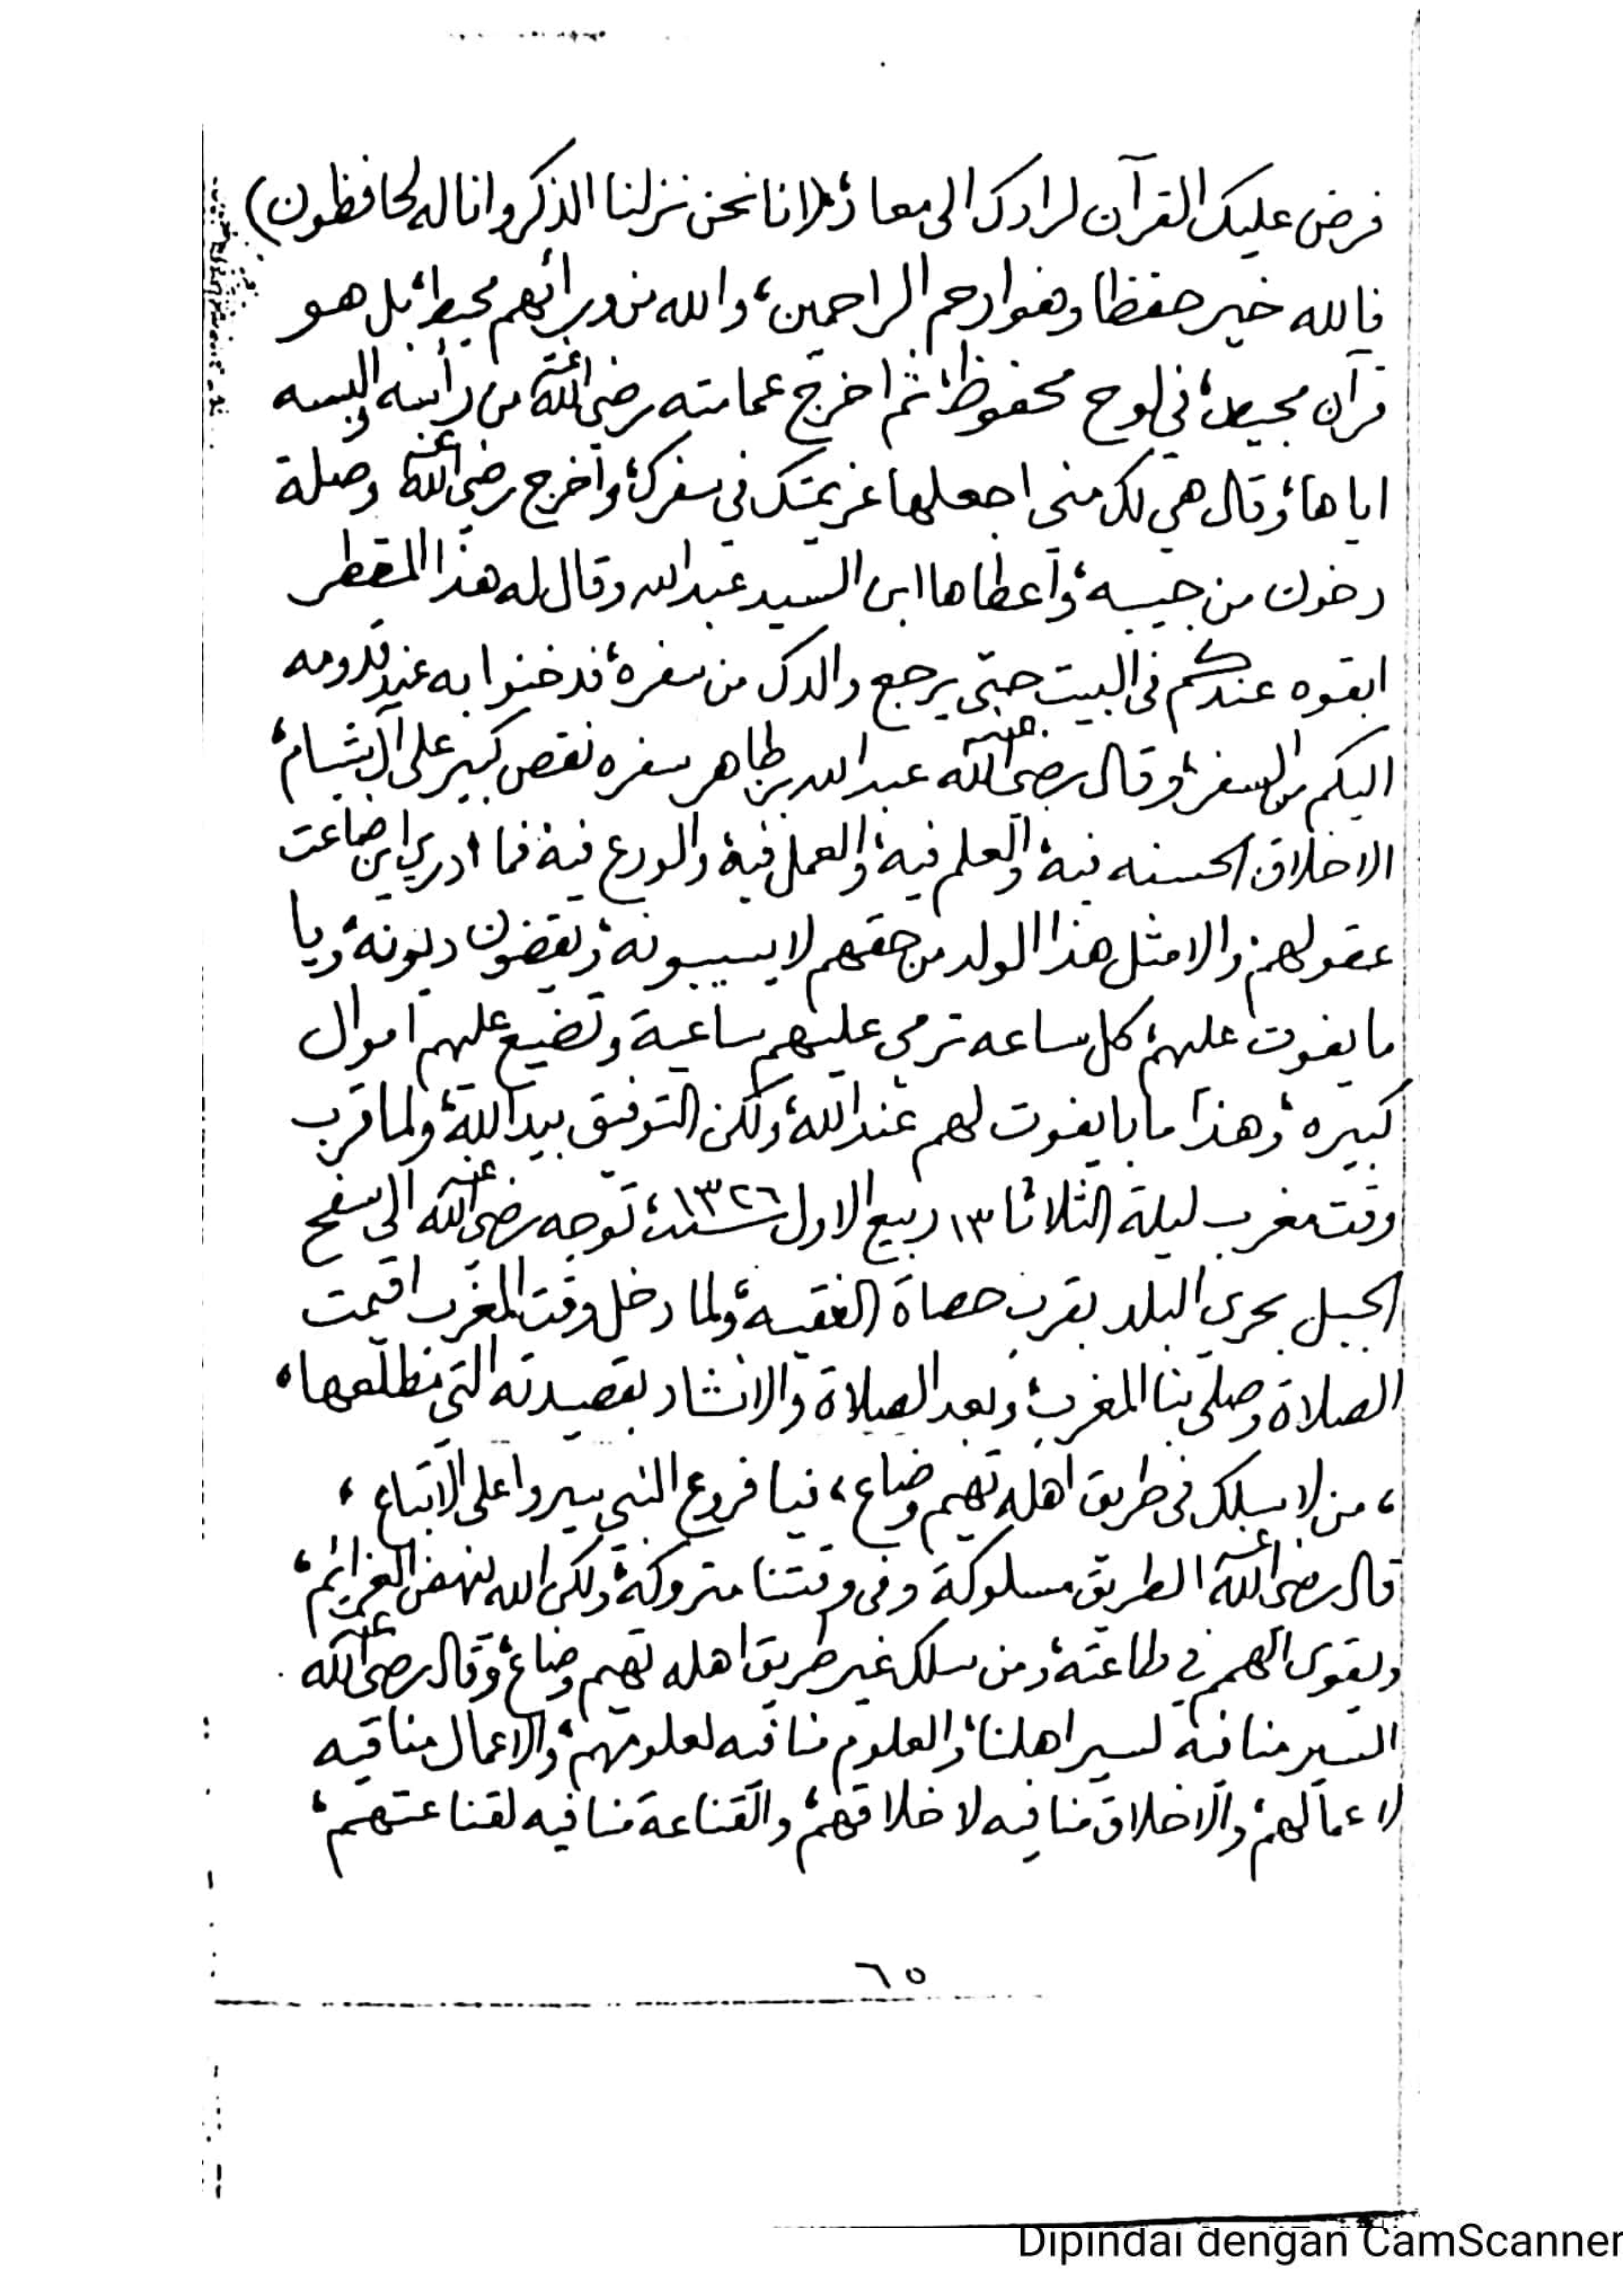 فرض عليك القرآن لرادك الى معاد، انا نحن نزلنا الذكر وانا له لحافظون)
فالله خير حفظا وهو ارحم الراحمين، والله من ورائهم محيط، بل هو
قرآن مجيد، في لوح محفوظ، ثم اخرج عمامته رضي الله عنه من رأسه والبسه
اياها، وقال هي لك مني اجعلها عزيمتك في سفرك، واخرج رضي الله عنه وصلة
دخون من جيبه، واعطاها ابن السيد عبدالله وقال له هذا المقطر
ابقوه عندكم في البيت حتى يرجع والدك من سفره، فدخنوا به عند قدومه
اليكم من السفر، وقال رضي الله عنه عبدالله بن طاهر سفره نقص كبير على آل شبام،
الاخلاق الحسنه فيه، والعلم فيه، والعمل فيه، والورع فيه، فما ادري اين ضاعت
عقولهم، والا مثل هذا الولد من حقهم لا يسيبونه، ويقضون ديونه، ويا
ما يفوت عليهم، كل ساعه ترمي عليهم ساعية وتضيع عليهم اموال
كبيره، وهذا ما بايفوت لهم عند الله، ولكن التوفيق بيد الله، ولما قرب
وقت مغرب ليلة الثلاثا ١٣ ربيع الاول سنة ١٣٢٦، توجه رضي الله عنه الى سفح
الجبل بحري البلد بقرب حصاة الفقيه، ولما دخل وقت المغرب اقيمت
الصلاة وصلى بنا المغرب، وبعد الصلاة والانشاد بقصيدته التي مطلعها،
، من لا يسلك في طريق اهله تهيم وضاع، فيا فروع النبي سيروا على الاتباع،
قال رضي الله عنه الطريق مسلوكة وفي وقتنا متروكة، ولكن الله ينهض العزائم،
ويقوي الهمم في طاعته، ومن سلك غير طريق اهله تهيم وضاع، وقال رضي الله عنه
السير منافيه لسير اهلنا، والعلوم منافيه لعلومهم، والاعمال منافيه
لاعمالهم، والاخلاق منافيه لاخلاقهم، والقناعة منافيه لقناعتهم،
٦٥
Dipindai dengan CamScanner